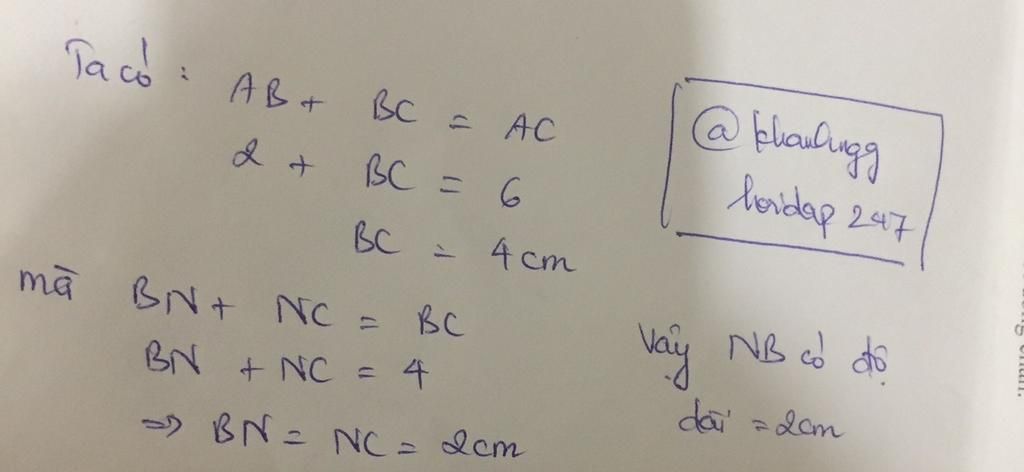 Ta có :
AB + BC = AC
2 + BC = 6
BC = 4 cm
mà BN + NC = BC
BN + NC = 4
=> BN = NC = 2cm
@ khanhngg
hoidap 247
Vậy NB có độ
dài = 2cm